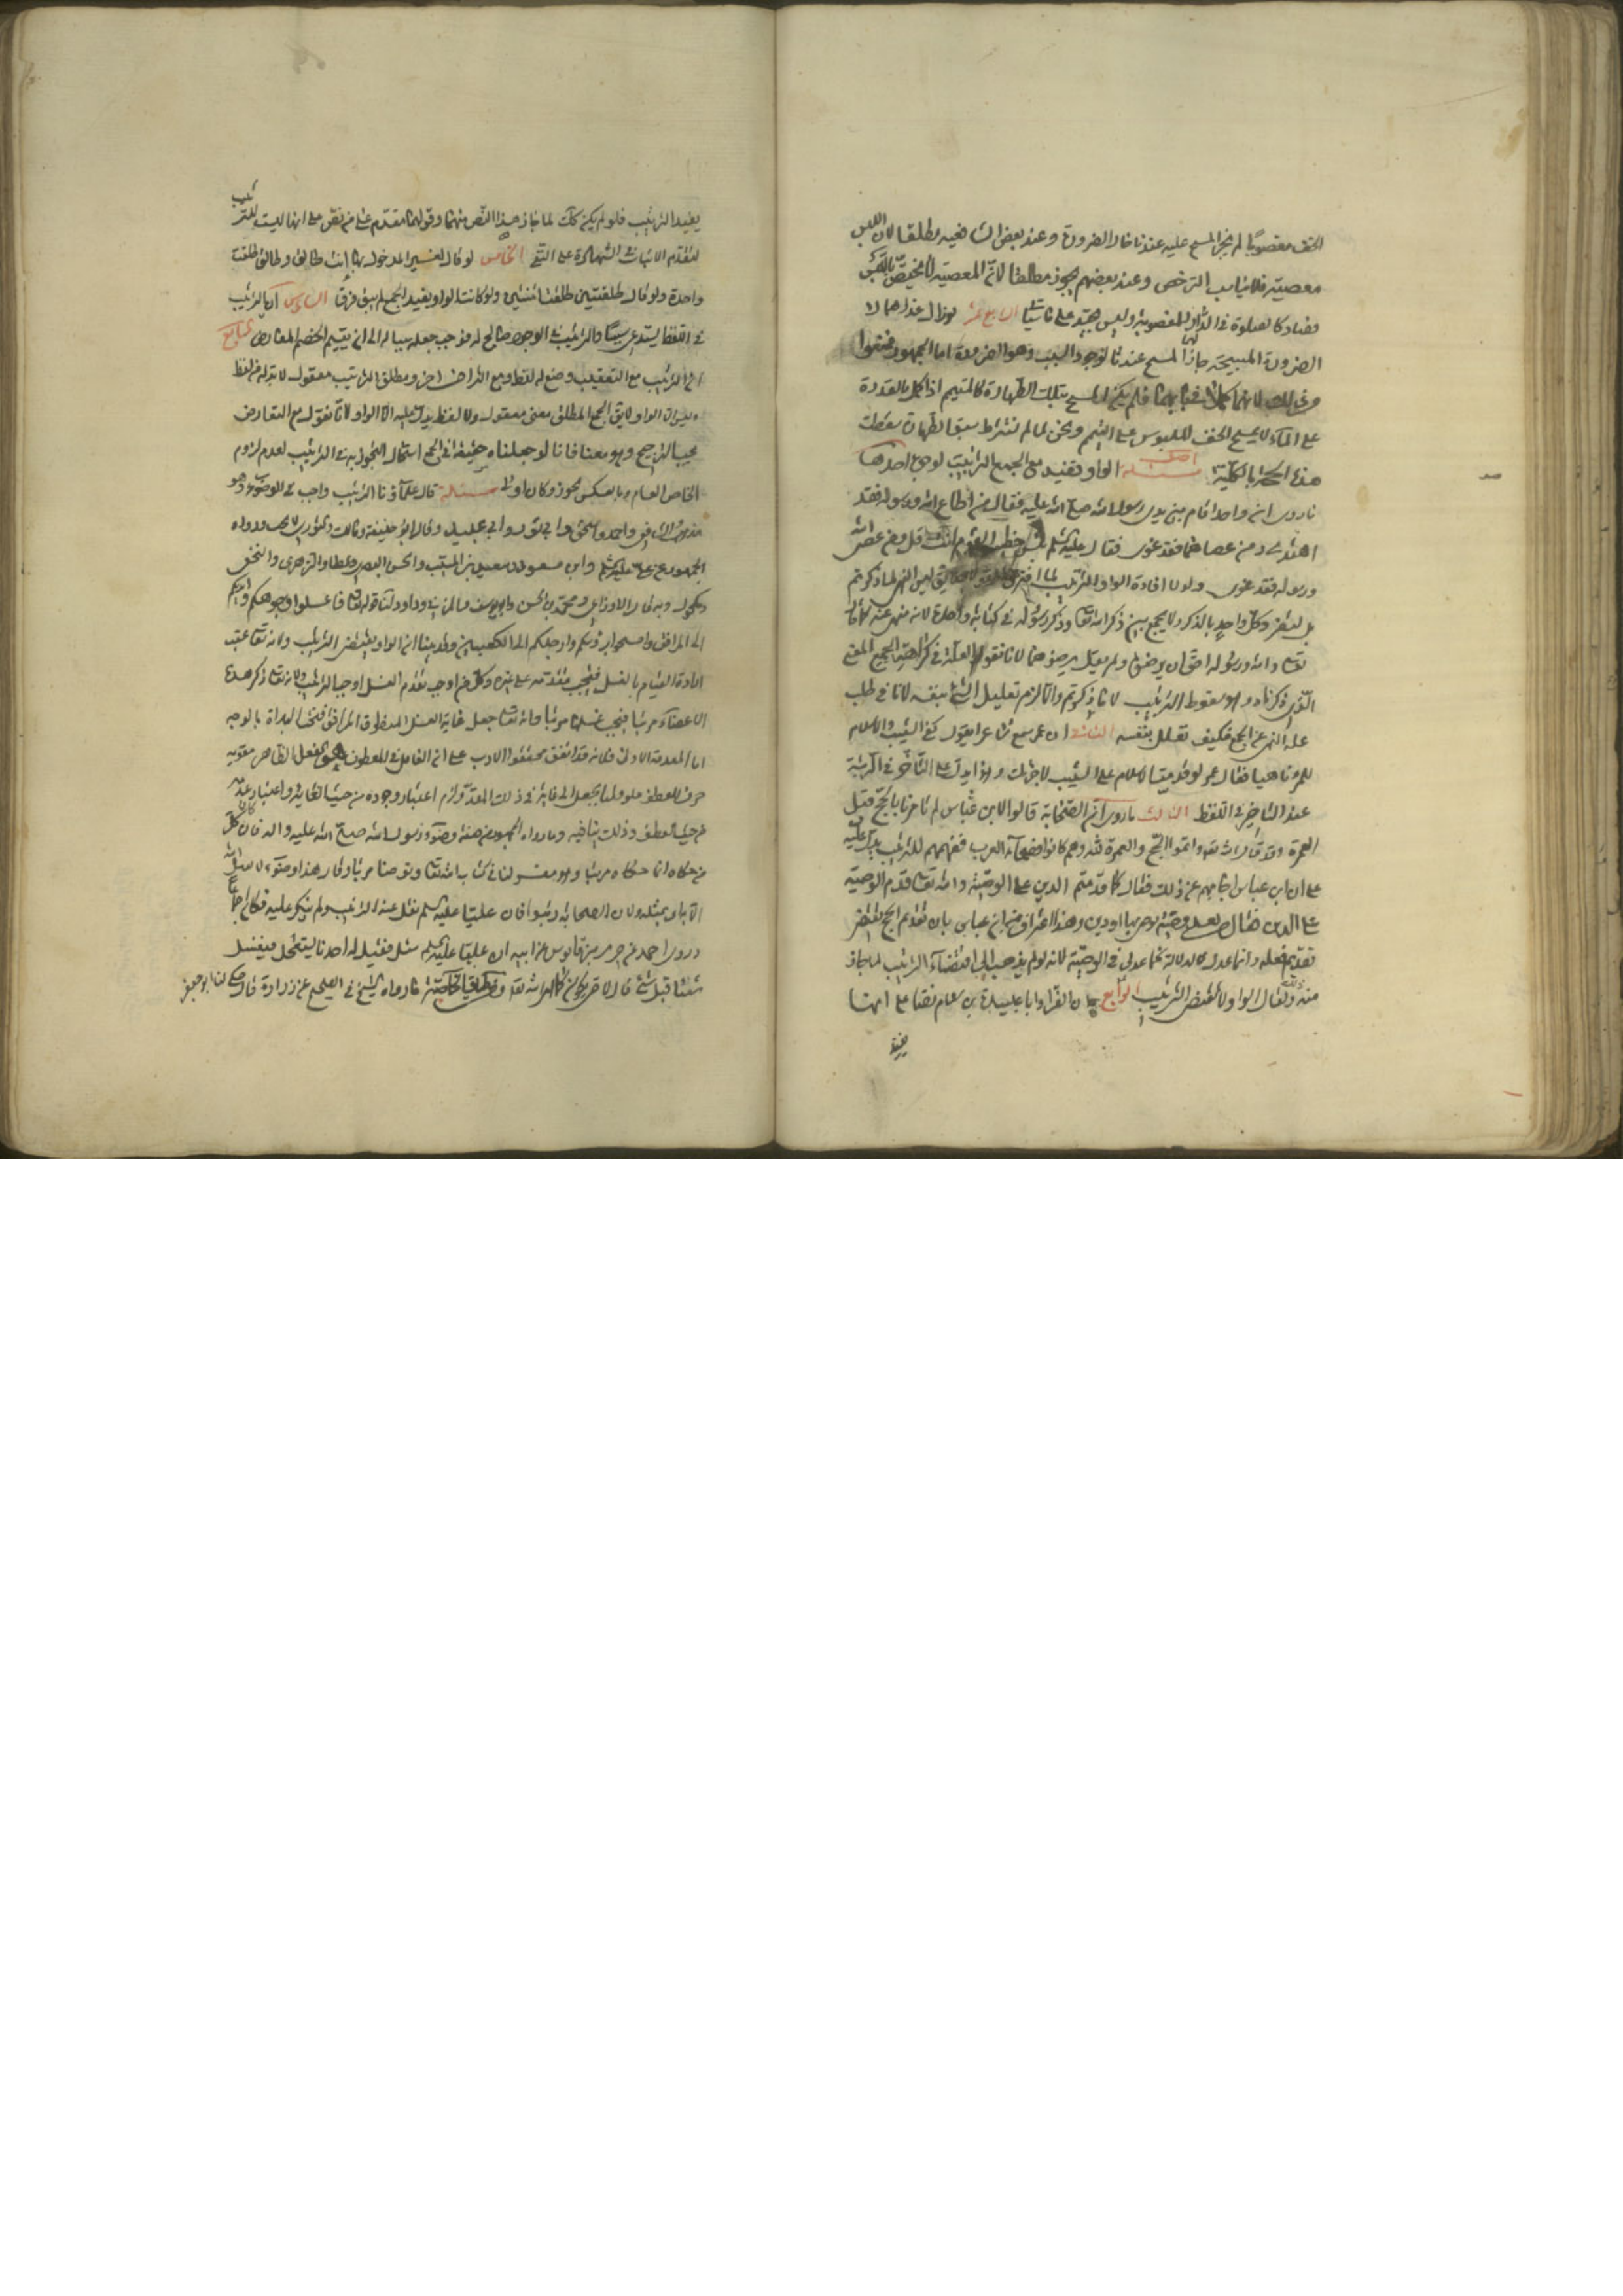 الخف مغصوبا لم يجز المسح عليه عندنا خال الضرورة وعند بعض الشافعية مطلقا لان اللبس
معصية فلا يناسب الترخص وعند بعضهم يجوز مطلقا لان المعصية لا تختص باللبس
فصار كالصلوة في الدار المغصوبة وليس بجيد على ما سيأتى الرابع عشر لو زال عذرهما او
الضرورة المبيحة جاز لهما المسح عندنا لوجود السبب وهو الضرورة اما الجمهور فمنعوا
من ذلك لانها كملا في بابهما فلم يكن له المسح بتلك الطهارة كالمتيمم اذا كمل بالقدرة
على الماء لا يمسح الخف الملبوس على التيمم ونحن لما لم نشترط سبق الطهارة سقطت
هذه بالكلية اصل مسئلة الواو تفيد مع الجمع الترتيب لوجوه احدها
ما روى ان واحدا قام بين يدى رسول الله صلى الله عليه فقال من اطاع الله ورسوله فقد
اهتدى ومن عصاهما فقد غوى فقال عليه السلم بئس خطيب القوم انت قل ومن عصى الله
ورسوله فقد غوى ولولا افادة الواو الترتيب لما افترق لا يق ليس النهى لما ذكرتم
بل لتفرد كل واحد بالذكر ولا يجمع بين ذكر الله تعالى وذكر رسوله في كناية واحدة لانه منهى عنه كما قال
تعالى والله ورسوله احق ان يرضوه ولم يقل يرضوهما لانا نقول العلة في كراهية الجمع المعنى
الذى ذكرناه وهو سقوط الترتيب لا ما ذكرتم والا لزم تعليل الشئ بنفسه لانا في طلب
علة النهى عن الجمع فكيف تعلل بنفسه الثانى ان عمر سمع شاعرا يقول كفى الشيب والاسلام
للمرء ناهيا فقال عمر لو قدمت الاسلام على الشيب لاجزتك وهذا يدل على التأخر في المرتبة
عند التأخير في اللفظ الثالث ما روى ان الصحابة قالوا لابن عباس لم تامرنا بالحج قبل
العمرة وقد قال الله تعالى واتموا الحج والعمرة لله وهم كانوا فصحاء العرب ففهمهم للترتيب يدل عليه
على ان ابن عباس اجابهم عن ذلك فقال كما قدمتم الدين على الوصية والله تعالى قدم الوصية
على الدين فقال من بعد وصية يوصى بها او دين وهذا اعتراف من ابن عباس بان تقديم الحج يقتضى
تقديم فعله وانما عدل لدلالة كما عدل في الوصية لانه لو لم يذهب الى اقتضاء الترتيب لما جاز
منه ذلك ولقال الواو لا تقتضى الترتيب الرابع ان الفراء وابا عبيدة بن سلام نصا على انها
يفيد
يفيد الترتيب فلو لم يكن كذلك لما جاز هذا النص منهما وقولهما مقدم على من نص على انها ليست للترتيب
لتقدم الاثبات في الشهادة على النفى الخامس لو قال لغير المدخول بها انت طالق وطالق طلقت
واحدة ولو قال طلقتين طلقت اثنتين ولو كانت الواو يفيد الجمع لم يبق فرق السادس ان الترتيب
في اللفظ يستدعى سببا والترتيب في الوجود صالح له فوجب جعله سببا له الى ان يقيم الخصم المعارض السابع
ان الترتيب مع التعقيب وضع له لفظ ومع التراخى اخر ومطلق الترتيب معقول لا بد له من لفظ
وليس الا الواو لا يق الجمع المطلق معنى معقول ولا لفظ يدل عليه الا الواو لانا نقول مع التعارض
يجب الترجيح وهو معنا فانا لو جعلناه حقيقة في الجمع استحال التجوز به في الترتيب لعدم لزوم
الخاص العام وبالعكس يجوز وكان اولى مسئلة قال علماؤنا الترتيب واجب في الوضوء وهو
مذهب الشافعى واحمد واسحق وابى ثور وابى عبيد وقال ابو حنيفة ومالك والثورى لا يجب ورواه
الجمهور عن على عليه السلم وابن مسعود وسعيد بن المسيب والحسن البصرى وعطا والزهرى والنخعى
ومكحول وبه قال الاوزاعى ومحمد بن الحسن وابو يوسف والمزنى وداود لنا قوله تعالى فاغسلوا وجوهكم وايديكم
الى المرافق وامسحوا برؤسكم وارجلكم الى الكعبين وقد بينا ان الواو يقتضى الترتيب ولانه تعالى عقب
ارادة القيام بالغسل فيجب تقدمه على غيره وكل من اوجب تقدم الغسل اوجب الترتيب ولانه تعالى ذكر هذه
الاعضاء مرتبا فيجب غسلها مرتبا ولانه تعالى جعل غاية الغسل المرافق فيجب البدأة بالوجه
اما المقدمة الاولى فلانه قد اتفق محققوا الادب على ان العامل في المعطوف هو الفعل الظاهر مقويه
حرف العطف
من حيث العطف وذلك ينافيه وما رواه الجمهور من صفة وضوء رسول الله صلى الله عليه واله فان كل
من حكاه انما حكاه مرتبا وهو مفسر لما في كتاب الله تعالى وتوضا مرتبا وقال هذا وضوء لا يقبل الله
الا بمثله ولان الصحابة رتبوا فان عليا عليه السلم نقل عنه الترتيب ولم ينكر عليه فكان اجماعا
وروى احمد عن جرير عن قابوس عن ابيه ان عليا عليه السلم سئل فقيل له احدنا يستعجل فيغسل
شيئا قبل شئ قال لا حتى يكون كما امر الله تعالى ما رواه الشيخ في الصحيح عن زرارة قال قال لنا ابو جعفر